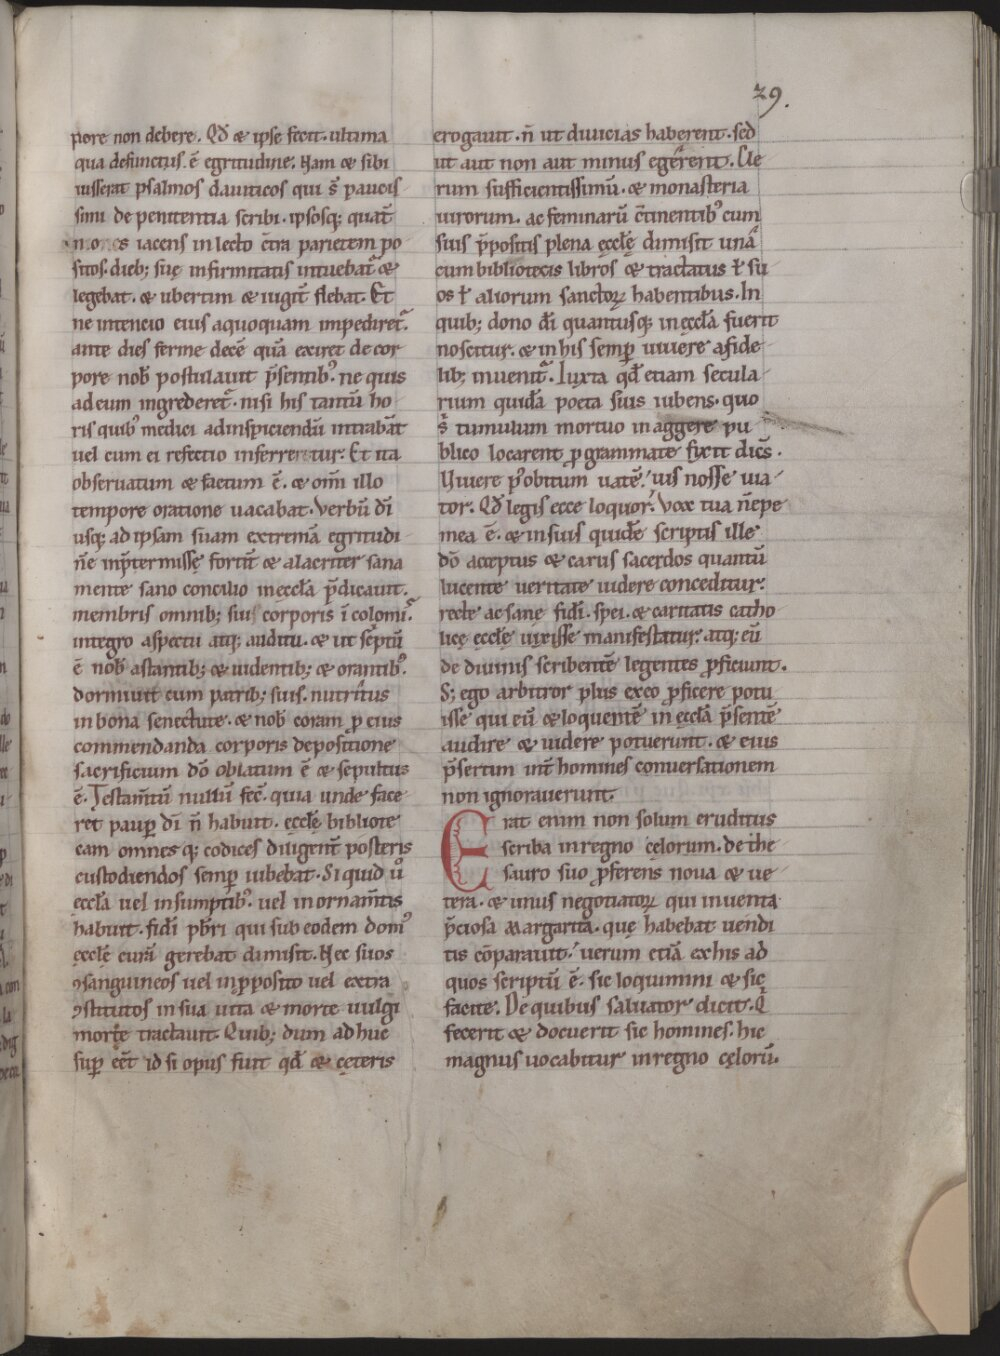 29.
pore non debere. Qđ & ipse fecit. ultima
qua defunctus. ē egritudine; Nam & sibi
iusserat psalmos dauiticos qui s̄ paucis
simi de penitentia scribi. ipsosq; quat̄
iacens in lecto c̄tra parietem po
sitos. dieb; suę infirmitatis intuebat̄ &
legebat. & ubertim & iugit̄ flebat. Et
ne intencio eius aquoquam impediret̄.
ante dies ferme decē quā exiret de cor
pore nob̄ postulauit p̄sentib᾽. ne quis
ad eum ingrederet̄. nisi his tantū ho
ris quib᾽ medici adinspiciendū intrabāt
uel cum ei refectio inferretur. Et ita
obseruatum & factum ē. & om̄i illo
tempore orationi uacabat. Verbū dī
usq; ad ipsam suam extremā egritudi
nē inp̄termissę fortit̄ & alacriter sana
mente sano concilio inęccła p̄dicauit.
membris omnib; sui corporis ī colomi᾽.
integro aspectu atq; auditu. & ut sc̄ptū
ē nob̄ astantib; & uidentib; & orantib᾽.
dormiuit cum patrib; suis. nutritus
in bona senectute. & nob̄ coram ꝓ eius
commendanda corporis depositione
sacrificium dō oblatum ē & sepultus
ē. Testam̄tū nullū fec̄. quia unde face
ret paup̄ dī n̄ habuit. ęccłę bibliote
cam omnes q; codices diligent̄ posteris
custodiendos semp̄ iubebat. Si quid ū᾽
ęccła uel insumptib᾽. uel in ornam̄tis
habuit. fidī pb̄ri qui sub eodem dom᾽
ęccłę curā gerebat dimisit. Nec suos
ꝯsanguineos uel inp̄posito uel extra
ꝯstitutos in sua uita & morte uulgi
morte tractauit. Quib; dum ad huc
sup̄ eēt id si opus fuit qđ & cęteris
erogauit. n̄ ut diuicias haberent. sed
ut aut non aut minus egerent. Cle
rum sufficientissimū. & monasteria
uirorum. ac feminarū c̄tinentib᾽ cum
suis p̄positis plena ęccłę dimisit unā
cum bibliotecis libros & tractatus ł su
os ł aliorum sanctoꝝ habentibus. In
quib; dono dī quantusq; in ęccła fuerit
noscitur. & in his semp̄ uiuere afide
lib; inuenit̄. Iuxta qđ etiam secula
rium quidā poeta suis iubens. quo
s̄ tumulum mortuo in aggere pu
blico locarent ꝓgrammate fixit dicēs.
Viuere p᾽obitum uatē. uis nosse uia
tor. Qđ legis ecce loquor. Vox tua nēpe
mea ē. & insuis quidē scriptis ille
dō acceptus & carus sacerdos quantū
lucente ueritate uidere conceditur.
recte ac sanę fidī. spei. & caritatis catho
licę ęccłę uixisse manifestatur. atq; eū
de diuinis scribentē legentes ꝓficiunt.
S; ego arbitror plus exeo ꝓficere potu
isse qui eū & loquentē in ęccła p̄sentē
audire & uidere potuerunt. & eius
p̄sertim int̄ homines conuersationem
non ignorauerunt.
Erat enim non solum eruditus
scriba inregno cęlorum. de the
sauro suo ꝓferens noua & ue
tera. & unus negotiatoꝝ qui inuenta
p̄ciosa margarita. quę habebat uendi
tis cōparauit. uerum etiā ex his ad
quos scriptū ē. sic loquimini & sic
facite. De quibus saluator dicit. Q̄
fecerit & docuerit sic homines. hic
magnus uocabitur inregno cęlorū.